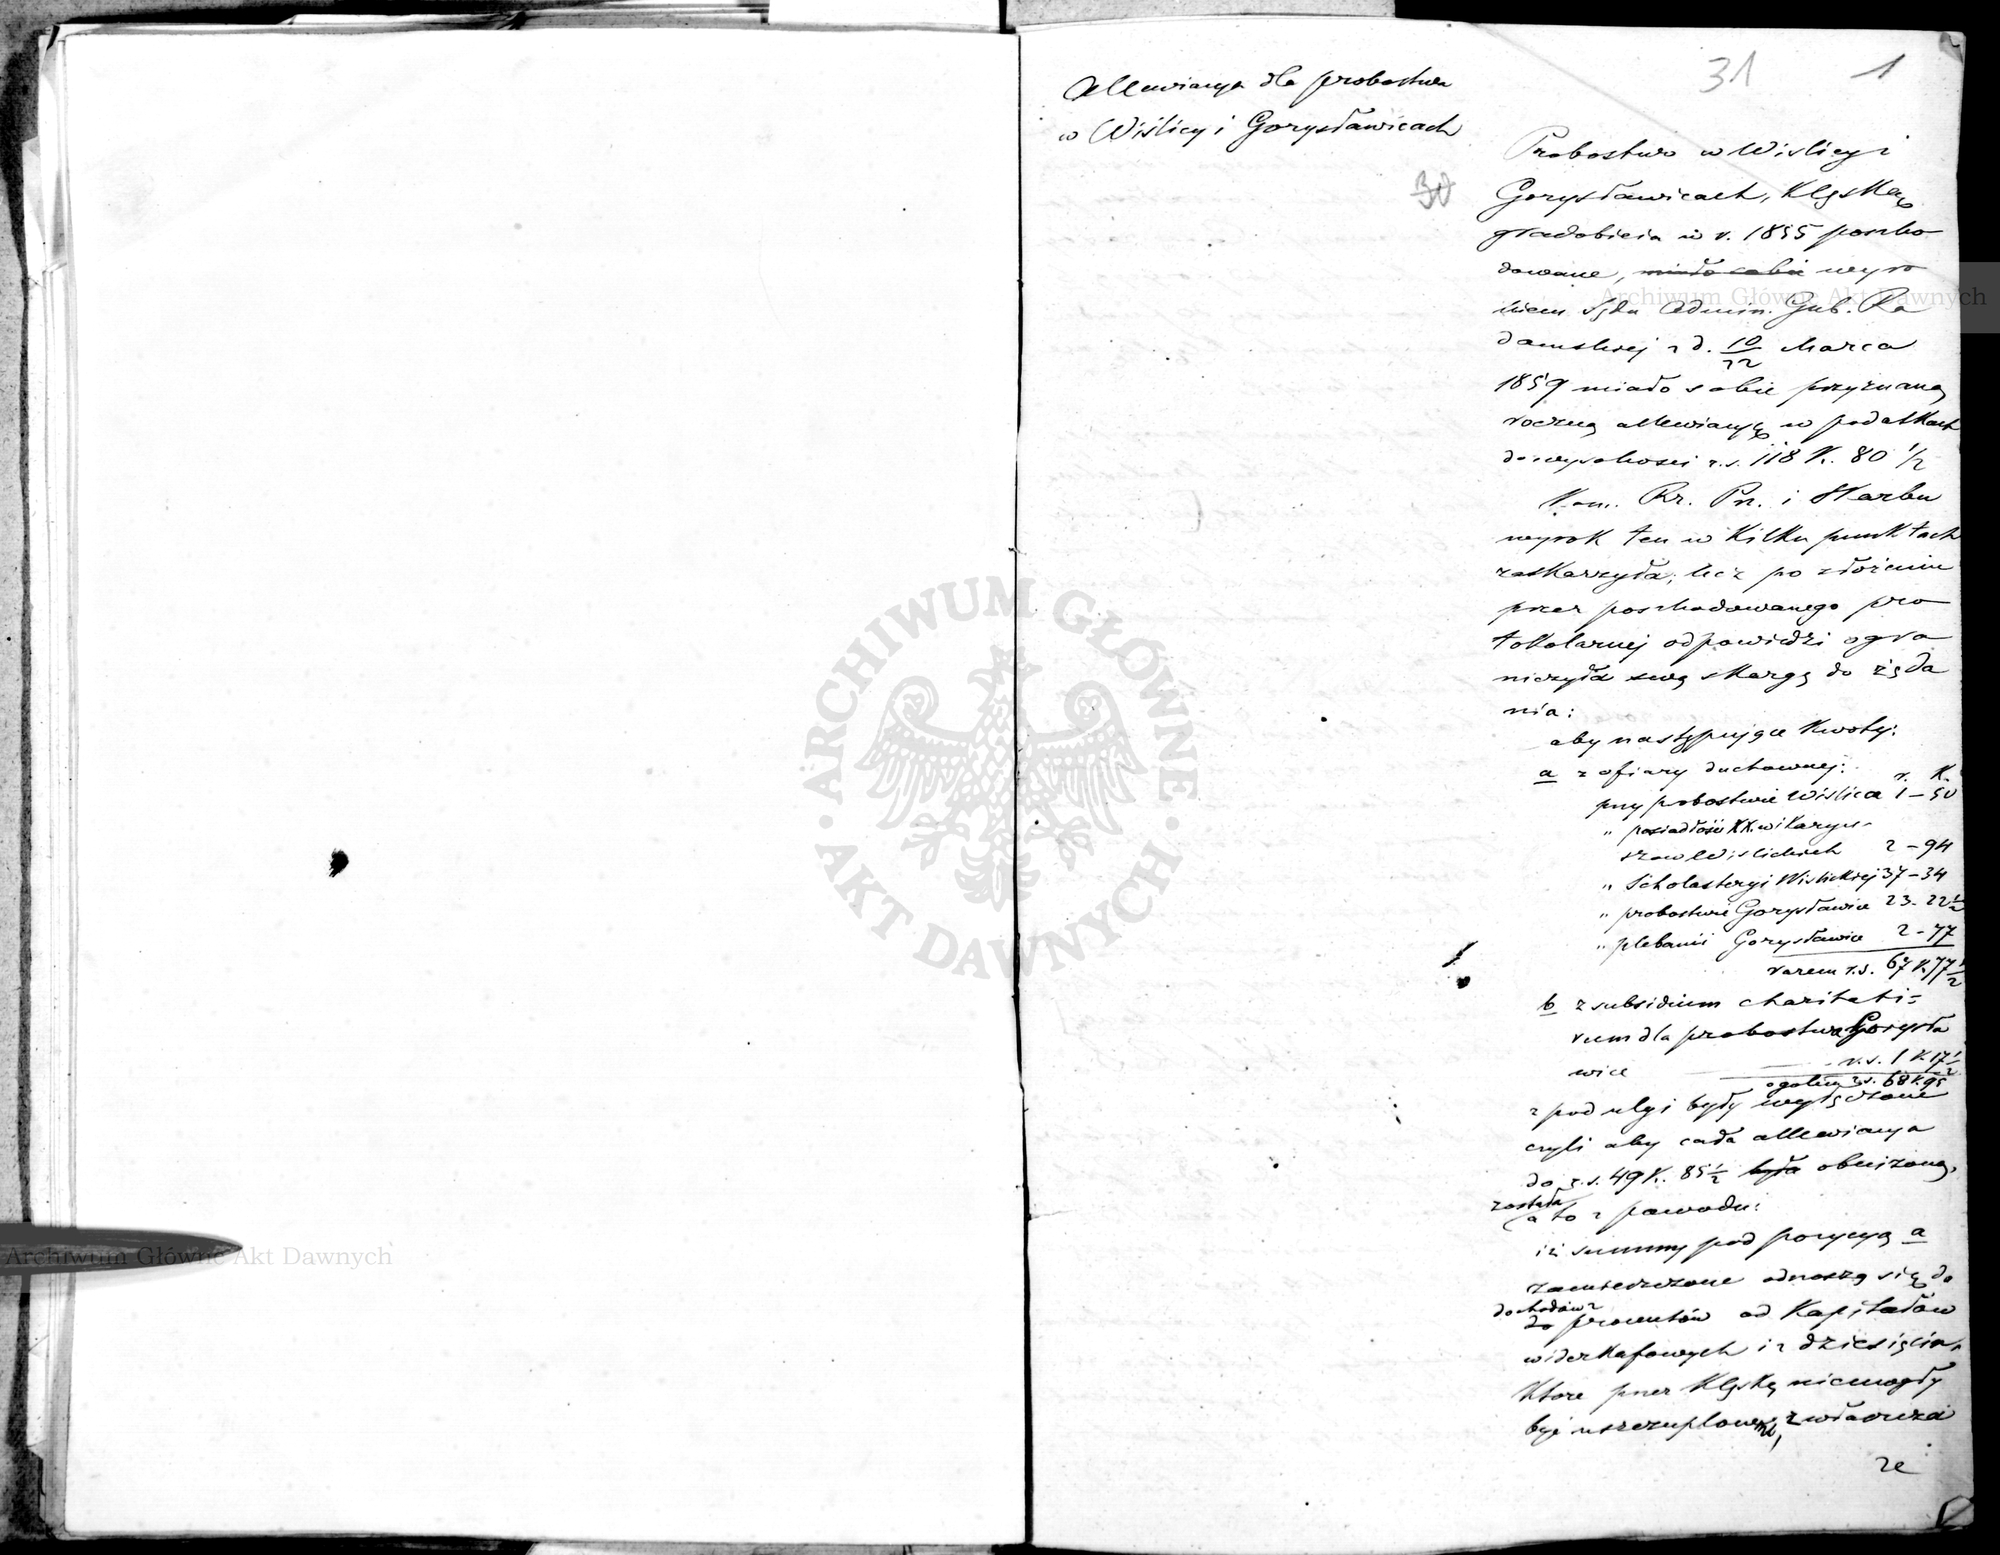 31 1
Allewiacya dla probostwa
w Wiślicy i Gorysławicach
30
Probostwo w Wiślicy i
Gorysławicach, klęską
gradobicia w r. 1855 poszko
dowane, miało sobie wyro
kiem Sądu Admin. Gub. Ra
domskiej z d. 10/22 Marca
1859 miało sobie przyznaną
roczną allewiacyą w podatkach
do wysokości r.s. 118 k. 80 1/2
Kom. Rz. Prz. i Skarbu
wyrok ten w kilku punktach
zaskarzyła; lecz po złożeniu
przez poszkodowanego pro
tokolarnej odpowiedzi ogra
niczyła swą skargę do żąda
nia:
aby następujące kwoty:
a z ofiary duchownej: r. k.
przy probostwie Wiślica 1 – 50
" posiadłości XX. wikaryu-
szow Wislickich 2 – 94
" Scholasteryi Wislickiej 37 – 34
" probostwie Gorysławice 23. 22 1/2
" plebanii Gorysławice 2 – 77
razem r.s. 67 k. 77 1/2
b z subsidium charitati=
vum dla probostwa Gorysła
wice r.s. 1 k. 17 1/2
ogółem r.s. 68 k. 95
z pod ulgi były wyłączone
czyli aby cała allewiacya
do r.s. 49 k. 85 1/2 była obniżoną,
została
a to z powodu:
iż summy pod pozycyą a
zamieszczone odnoszą się do
dochodów z
do procentów od kapitałów
widerkafowych i z dziesięcin,
które przez klęskę niemogły
być uszczuplone, zwłaszcza
że
Archiwum Główne Akt Dawnych
ARCHIWUM GŁÓWNE
AKT DAWNYCH
Archiwum Główne Akt Dawnych